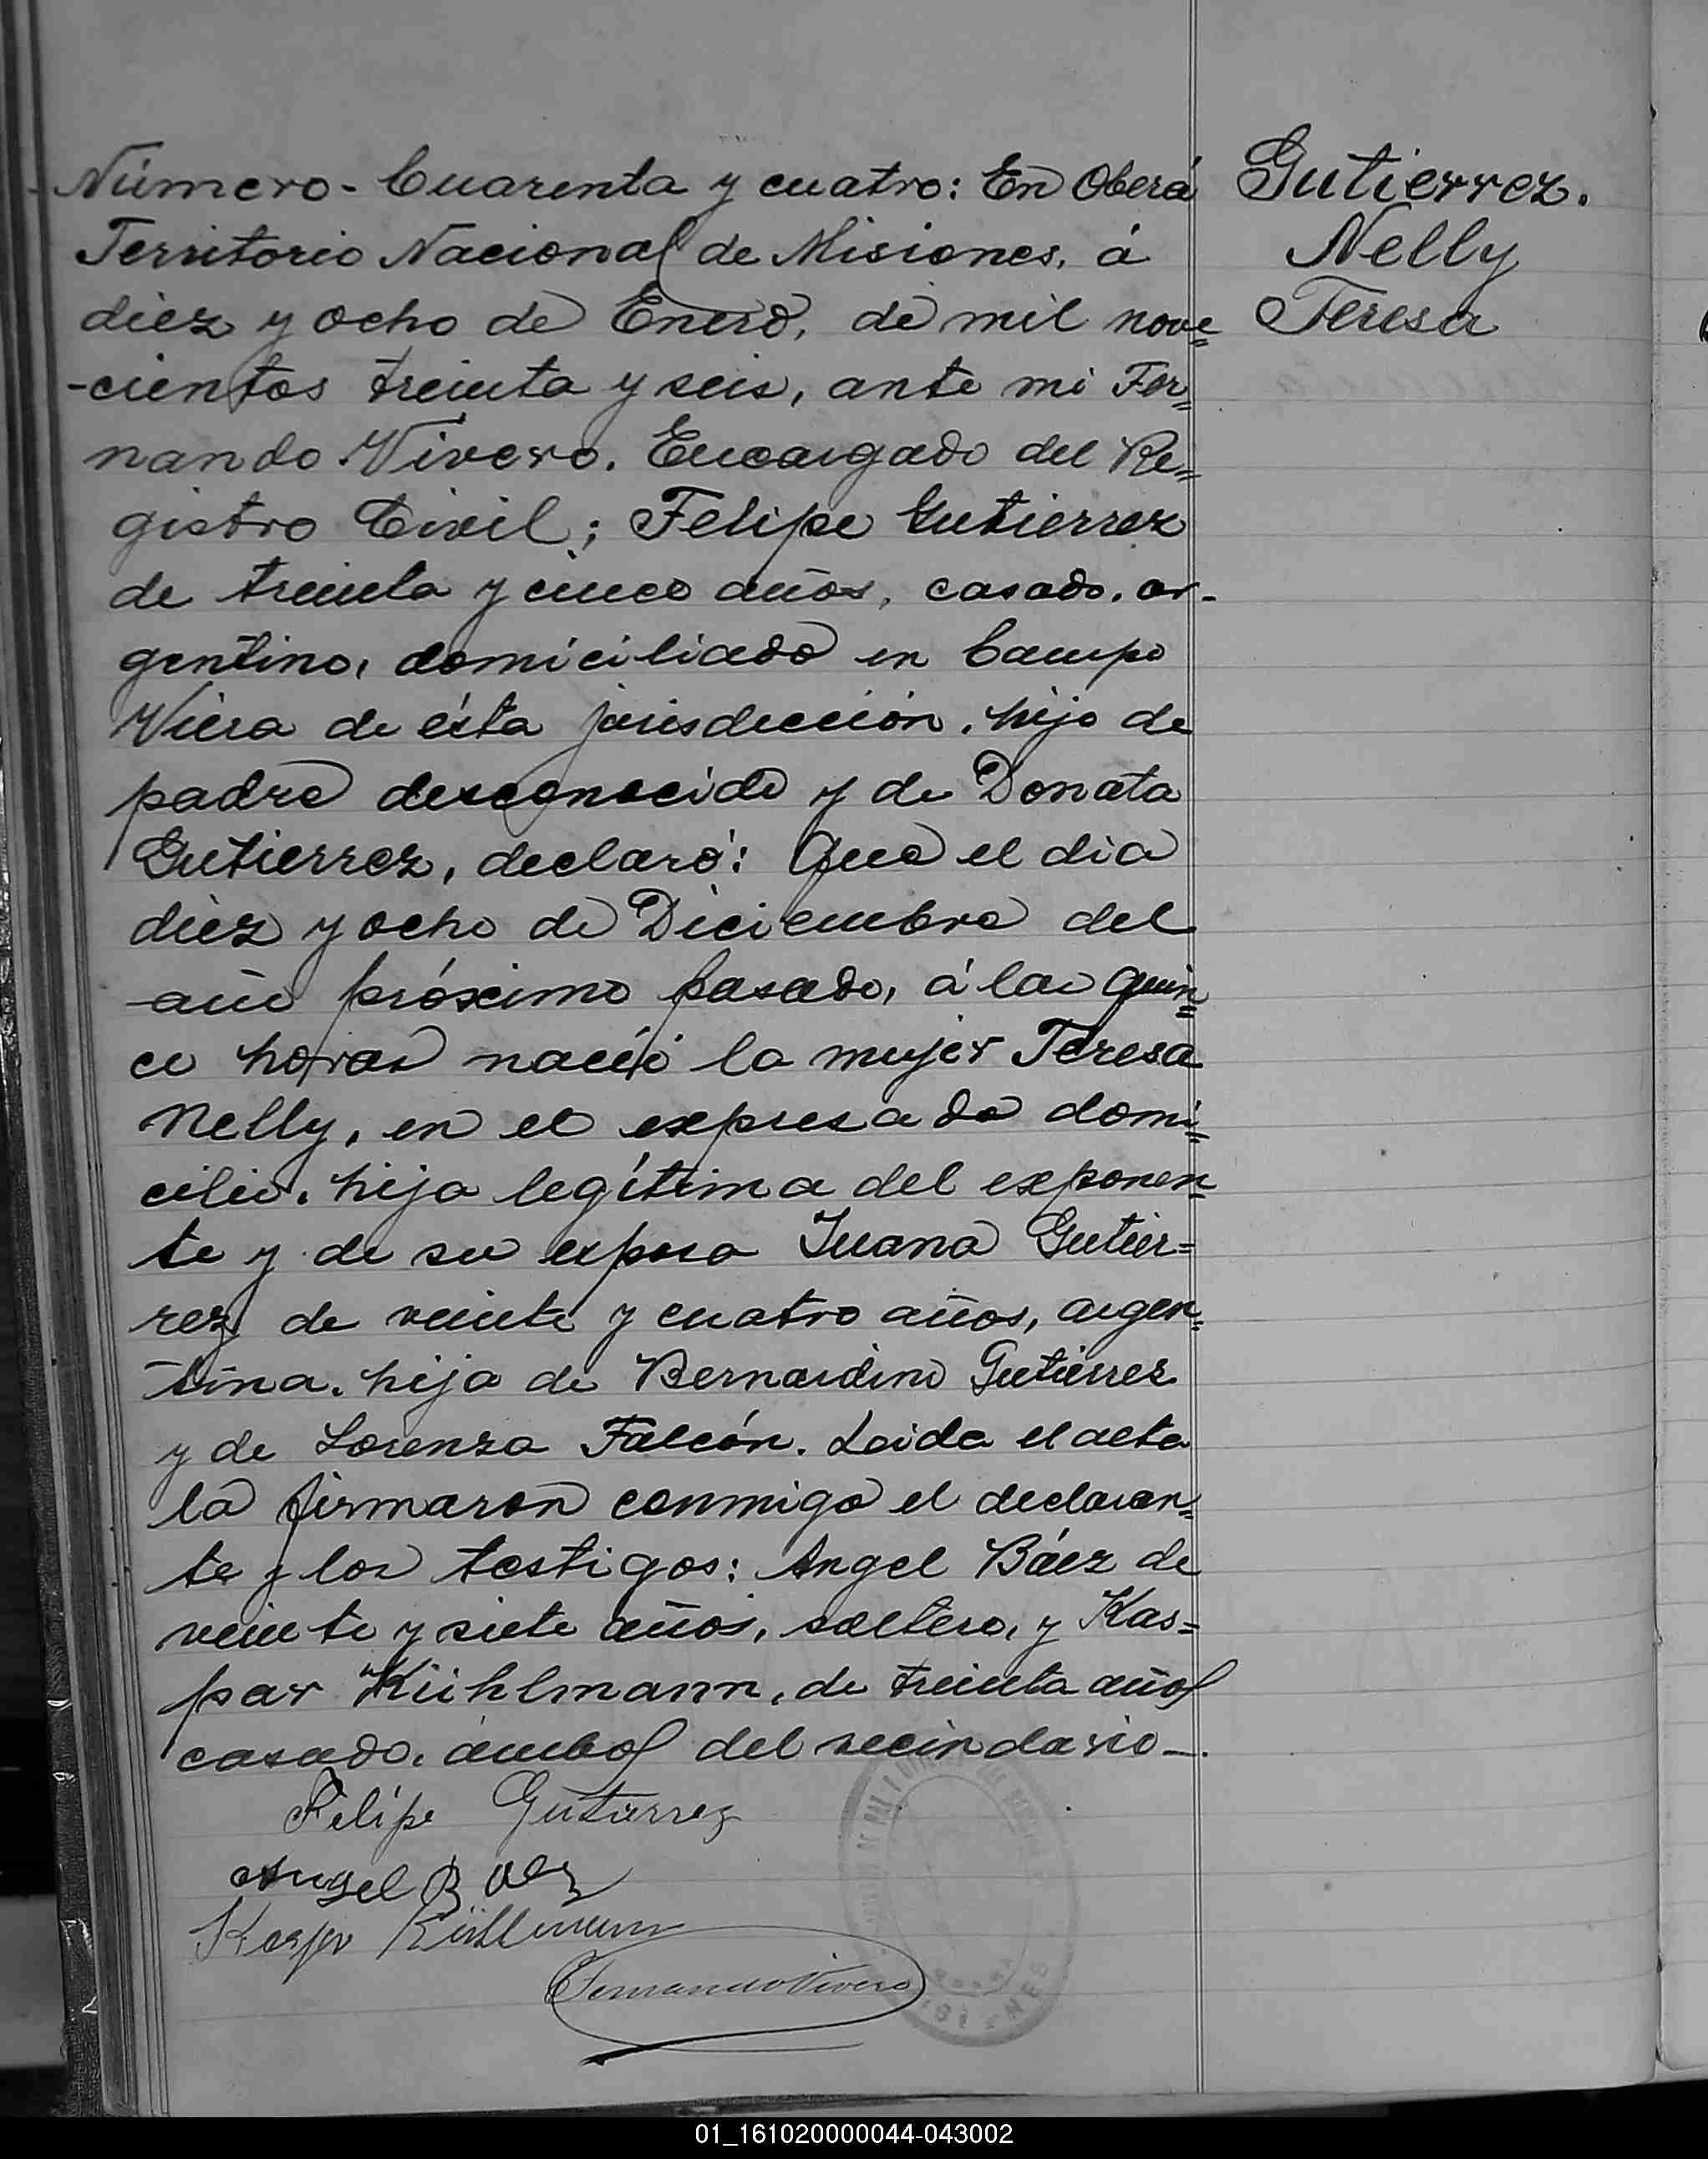 Número - Cuarenta y cuatro: En Oberá
Territorio Nacional de Misiones, á
diez y ocho de Enero, de mil nove=
-cientos treinta y seis, ante mi Fer=
nando Vivero. Encargado del Re=
gistro Civil; Felipe Gutierrez
de treinta y cinco años, casado, ar-
gentino, domiciliado en Campo
Viera de ésta jurisdicción, hijo de
padre desconocido y de Donata
Gutierrez, declaró: Que el dia
diez y ocho de Diciembre del
año próximo pasado, á las quin=
ce horas nació la mujer Teresa
Nelly, en el expresado domi=
cilio, hija legítima del exponen=
te y de su esposa Juana Gutier=
rez de veinte y cuatro años, argen=
tina, hija de Bernardino Gutierrez
y de Lorenza Falcón. Leida el acta
la firmaron conmigo el declaran=
te y los testigos: Angel Báez de
veinte y siete años, soltero, y Kas=
par Kühlmann, de treinta años
casado, ámbos del vecindario-.
Gutierrez.
Nelly
Teresa
Felipe Gutierrez
Angel Baez
Kaspar Kühlmann
Fernando Vivero
01_161020000044-043002